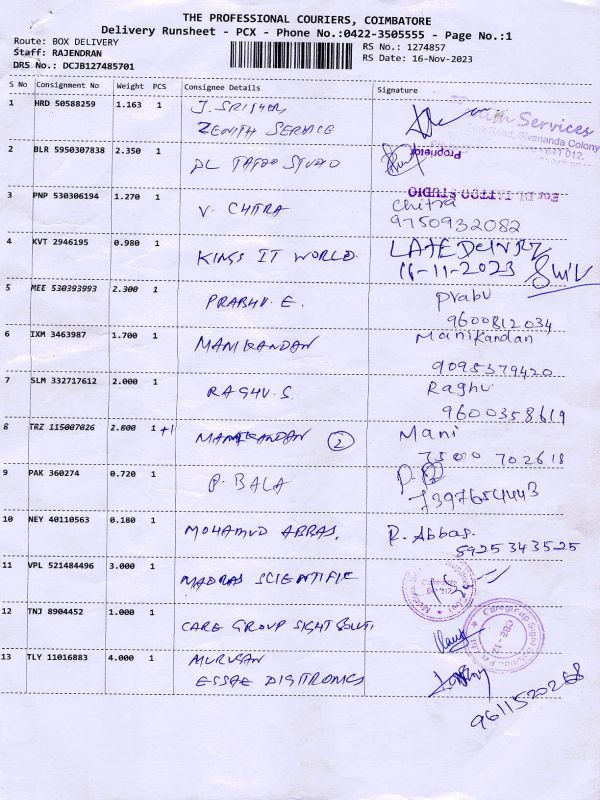 THE PROFESSIONAL COURIERS, COIMBATORE
Delivery Runsheet - PCX - Phone No.:0422-3505555 - Page No.:1
Route: BOX DELIVERY
Staff: RAJENDRAN
DRS No.: DCJB127485701
RS No.: 1274857
RS Date: 16-Nov-2023
S No Consignment No Weight PCS Consignee Details Signature
1 HRD 50588259 1.163 1 J. SRIDHAR
ZENITH SERVICE
Services
Road, Sivananda Colony
641 012.
2 BLR 5950307838 2.350 1 DL TATOO STUDIO
Proprietor
For DL TATTOO STUDIO
3 PNP 530306194 1.270 1 V. CHITRA Chitra
9750932082
4 KVT 2946195 0.980 1 KINGS IT WORLD. LATE DELIVRY
16-11-2023
5 MEE 530393993 2.300 1 PRABHU. E. Prabu
9600812034
6 IXM 3463987 1.700 1 MANIKANDAN Manikandan
9095379420
7 SLM 332717612 2.000 1 RAGHU. S. Raghu
9600358619
8 TRZ 115007026 2.800 1 +1 MANIKANDAN 2 Mani
7500 702618
9 PAK 360274 0.720 1 P. BALA
7397654443
10 NEY 40110563 0.180 1 MOHAMUD ABBAS. R. Abbas.
5925343525
11 VPL 521484496 3.000 1 MADRAS SCIENTIFIC
12 TNJ 8904452 1.000 1 CARE GROUP SIGHT SOLUTI
13 TLY 11016883 4.000 1 MURUGAN
ESSAE DIGITRONICS